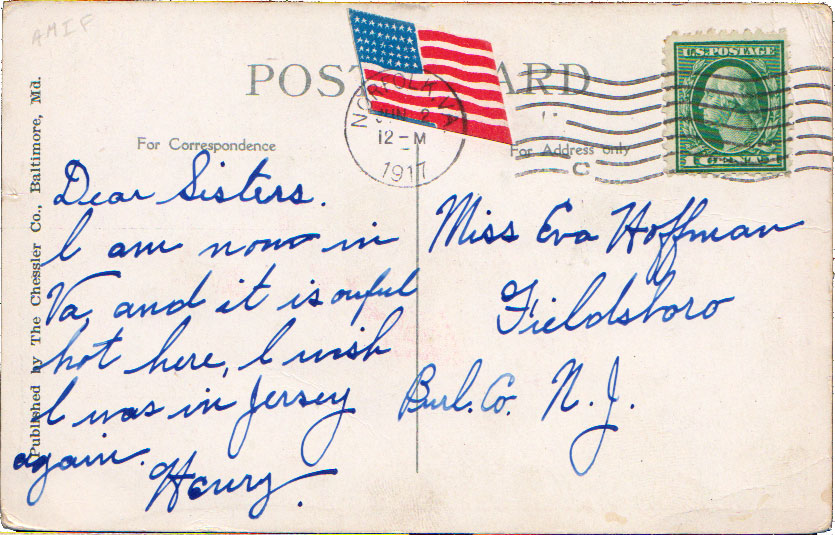 AMIF
POST CARD
U.S. POSTAGE
NORFOLK, VA
JUN 2
12-M
1917
For Correspondence
For Address only
Published by The Chessler Co., Baltimore, Md.
Dear Sisters.
I am now in
Va, and it is awful
hot here, I wish
I was in Jersey
again.
Henry.
Miss Eva Hoffman
Fieldsboro
Burl. Co. N. J.